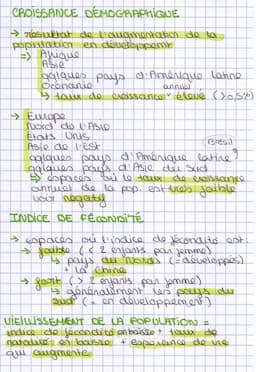 CROISSANCE DÉMOGRAPHIQUE
→ résultat de l'augmentation de la
population en développement
=> Afrique
Asie
qqlques pays d'Amérique latine
Océanie
annuel
↳ taux de croissance élevé (>0,5%)
→ Europe
Nord de l'Asie
États Unis
Asie de l'Est
(Brésil)
qqlques pays d'Amérique latine
qqlques pays d'Asie du Sud
=> espaces où le taux de croissance
annuel de la pop. est très faible
voir négatif
INDICE DE FÉCONDITÉ
→ espaces où l'indice de fécondité est :
→ faible (< 2 enfants par femme)
↳ pays du Nord (= développés)
+ la Chine
→ fort (> 2 enfants par femme)
↳ généralement les pays du
Sud (= en développement)
VIEILLISSEMENT DE LA POPULATION =
indice de fécondité en baisse + taux de
natalité en baisse + espérance de vie
qui augmente